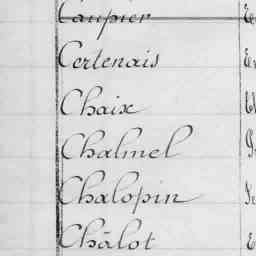 Caupier
Certenais
Chaix
Chalmel
Chalopin
Châlot